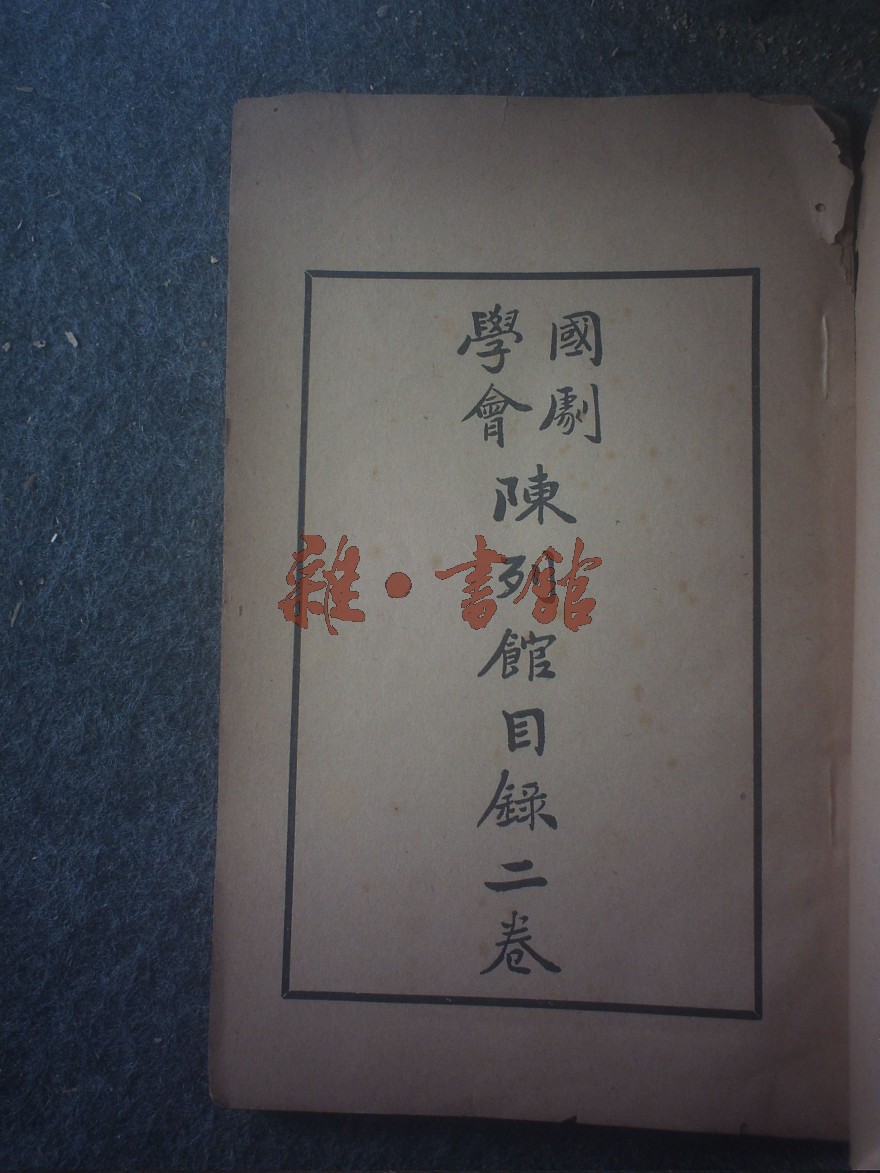 國劇
學會
陳列館目錄二卷
雜·書館